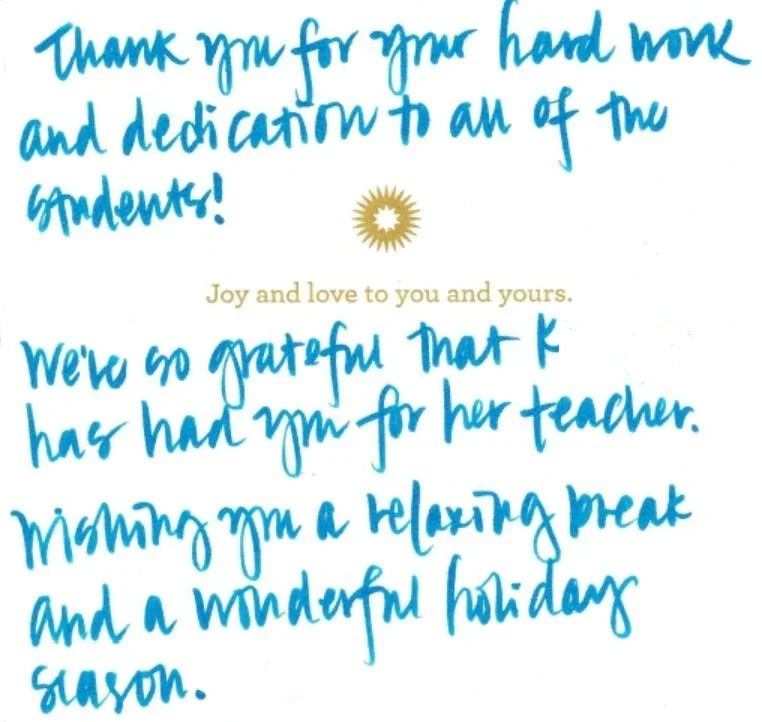 Thank you for your hard work
and dedication to all of the
students!
Joy and love to you and yours.
We're so grateful that K
has had you for her teacher.
Wishing you a relaxing break
and a wonderful holiday
season.